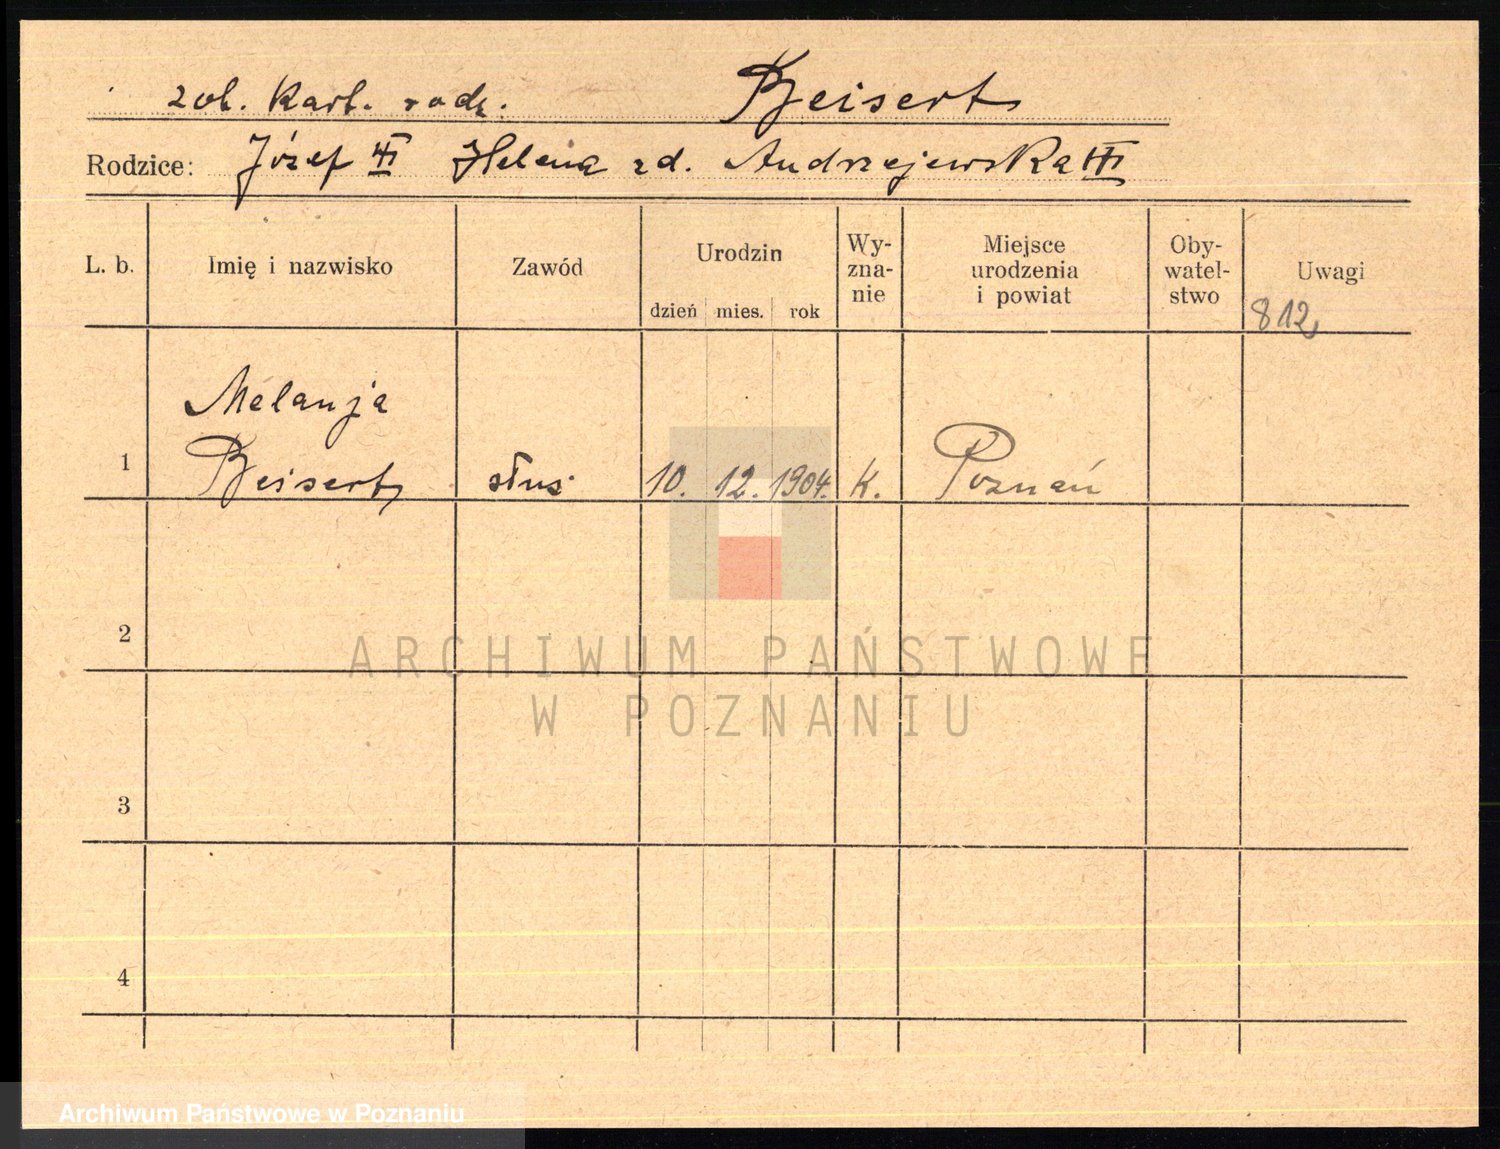 zob. Kart. rodz. Beisert
Rodzice: Józef Helena zd. Andrzejewska
L. b. Imię i nazwisko Zawód Urodzin dzień mies. rok Wy-zna-nie Miejsce urodzenia i powiat Oby-watel-stwo Uwagi
812
Melanja
1 Beisert służ. 10. 12. 1904. k. Poznań
2
ARCHIWUM PAŃSTWOWE
W POZNANIU
3
4
Archiwum Państwowe w Poznaniu